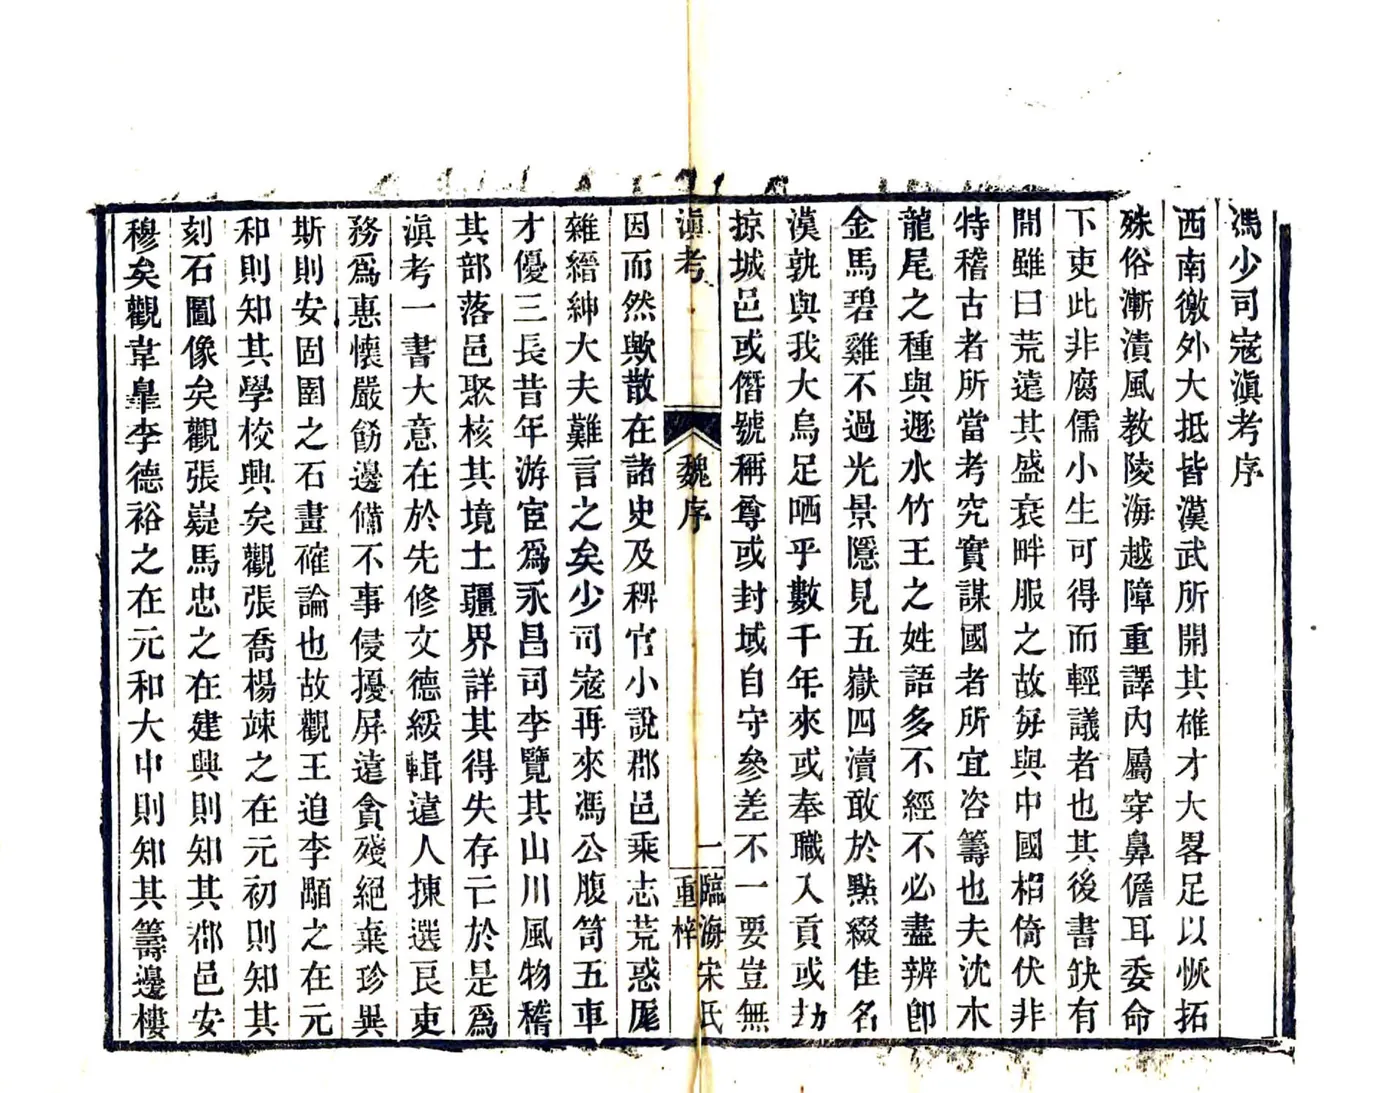 馮少司寇滇考序
西南徼外大抵皆漢武所開其雄才大畧足以恢拓
殊俗漸漬風教陵海越障重譯內屬穿鼻儋耳委命
下吏此非腐儒小生可得而輕議者也其後書缺有
間雖曰荒遠其盛衰畔服之故毎與中國相倚伏非
特稽古者所當考究實謀國者所宜咨籌也夫沈木
龍尾之種與遯水竹王之姓語多不經不必盡辨卽
金馬碧雞不過光景隱見五嶽四瀆敢於點綴佳名
漢孰與我大烏足哂乎數千年來或奉職入貢或劫
掠城邑或僭號稱尊或封域自守參差不一要豈無
滇考
魏序
一
臨海宋氏
重梓
因而然歟散在諸史及稗官小說郡邑乘志荒惑厖
雜縉紳大夫難言之矣少司寇再來馮公腹笥五車
才優三長昔年游宦爲永昌司李覽其山川風物稽
其部落邑聚核其境土疆界詳其得失存亡於是爲
滇考一書大意在於先修文德綏輯遠人揀選良吏
務爲惠懷嚴飭邊備不事侵擾屏遠貪殘絕棄珍異
斯則安固圉之石畫確論也故觀王追李顒之在元
和則知其學校興矣觀張喬楊竦之在元初則知其
刻石圖像矣觀張嶷馬忠之在建興則知其郡邑安
穆矣觀韋臯李德裕之在元和大中則知其籌邊樓